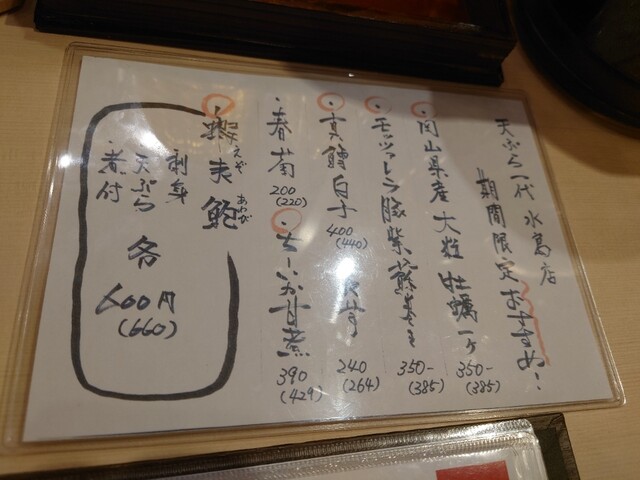 天ぷら一代 水島店
期間限定おすすめ!
・岡山県産 大粒 牡蠣 一ヶ 350- (385)
・モッツァレラ豚紫蘇巻き 350- (385)
・真鱈白子 400 (440)
240 (264)
・春菊 200 (220)
・ちーいか甘煮 390 (429)
・蝦夷鮑
えぞ あわび
刺身
・天ぷら
・煮付
各
600円
(660)